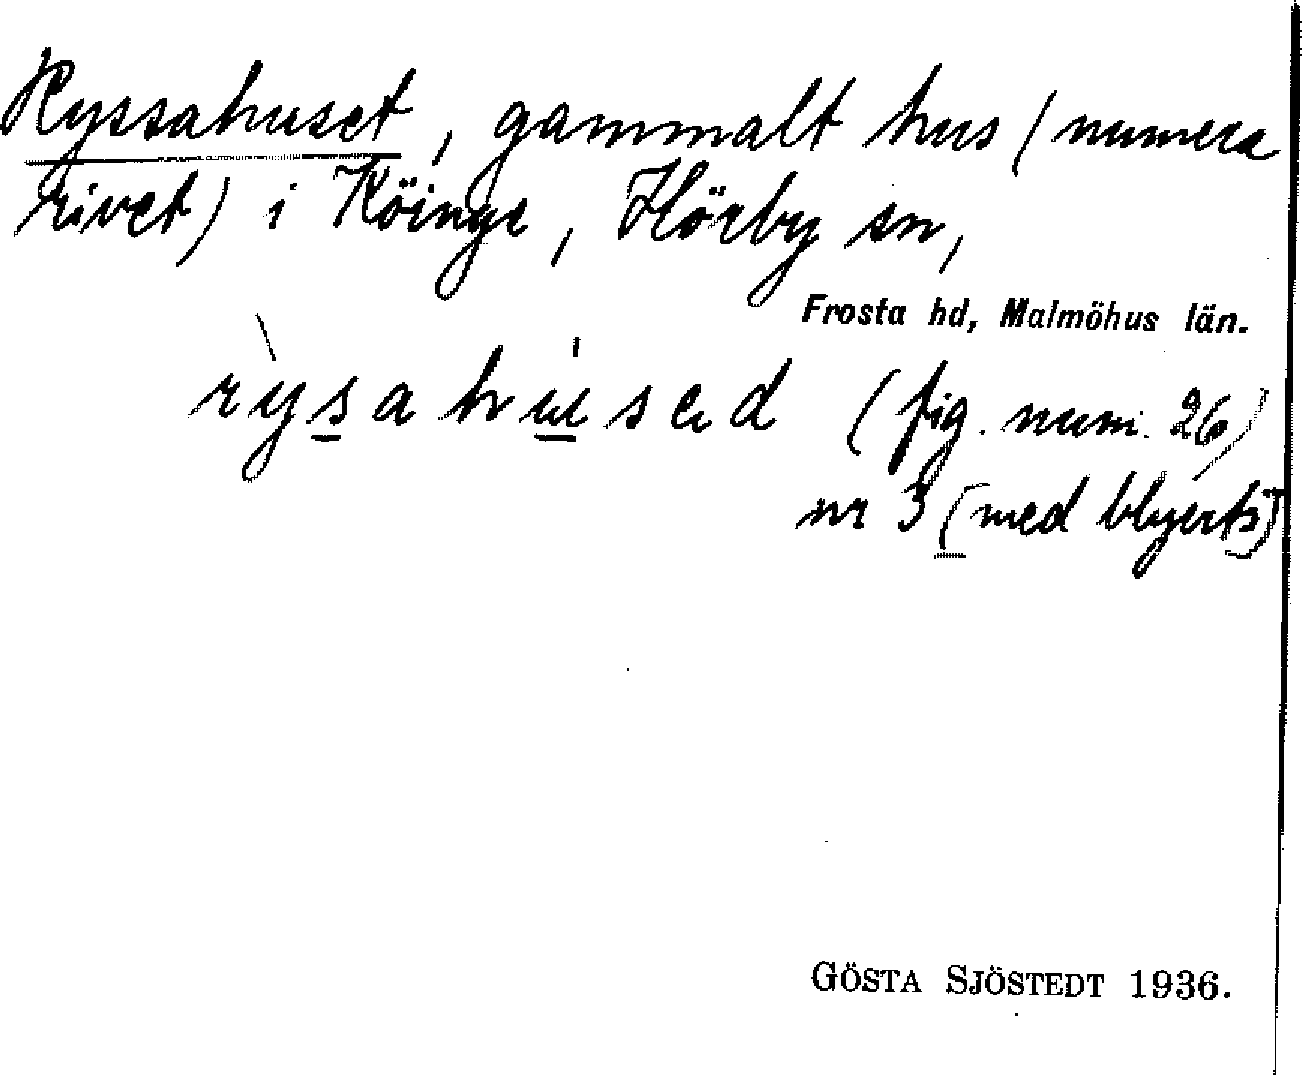 Ryssahuset, gammalt hus (numera
rivet) i Köinge, Hörby sn,
Frosta hd, Malmöhus län.
rỳsahu̍sed (fig. num. 26)
nr 3 (med blyerts)
GÖSTA SJÖSTEDT 1936.